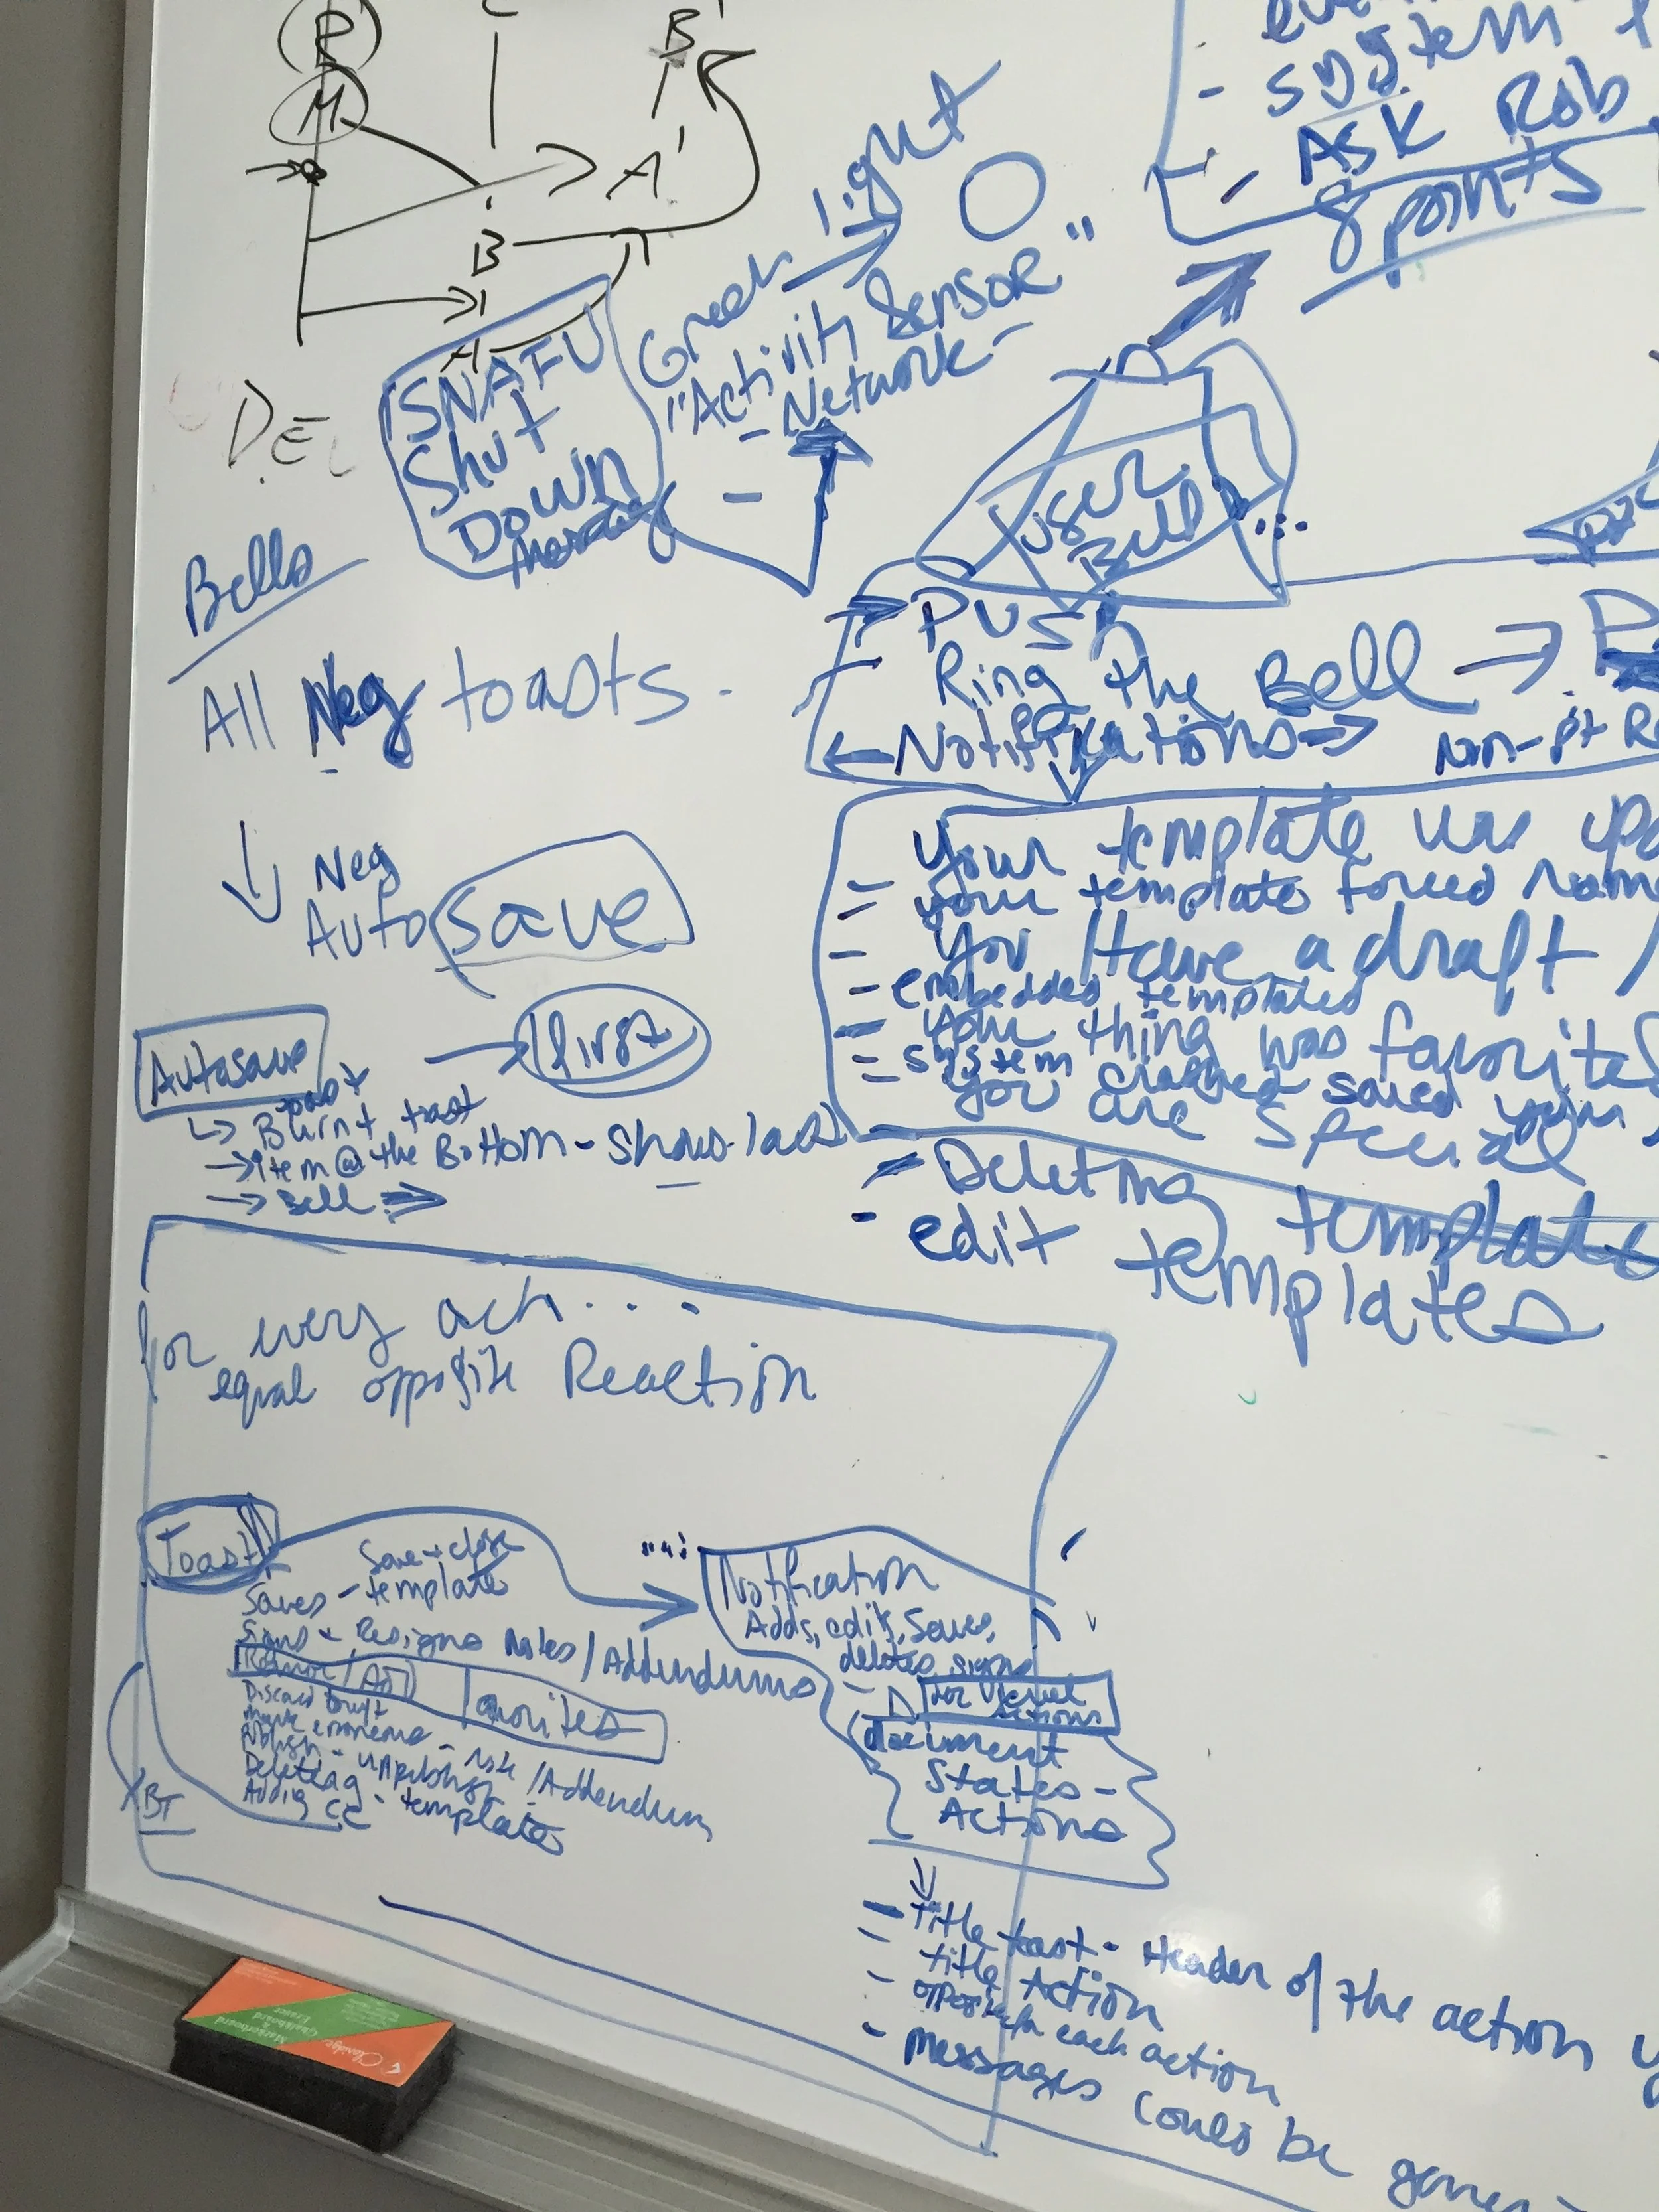 P
M
B'
A'
B
A
DEL
system
- Ask Rob
8 points
Green light
"Activity Sensor"
- Network -
SNAFU
Shut
Down
User
Bell
Bells
All Neg toasts.
Push
Ring the Bell →
← Notifications →
Non-pt
↓ Neg
Auto save
Your template was
- your template forced
- You Have a draft /
- embedded templates
- your thing was favorited
- system crashed saved your
You are special
- Deleting templates
- edit templates
Autosave → first
↳ Burnt toast
→ item @ the Bottom - shows last
→ Bell ⇒
for every actn...
equal opposite Reaction
Toast
Save + close
Saves - template
Signs + Resigns Notes / Addendums
Favorites
Discard Draft
Mark erroneous - Note / Addendum
Publish - unpublish
Deleting - templates
Adding CC
BT
Notification
Adds, edits, saves,
deletes, signs
Actions
document
States -
Actions
↓
- Title toast - Header of the action
- title Action
- opposite for each action
- messages could be
Claridge
Markerboard
&
Chalkboard
Eraser